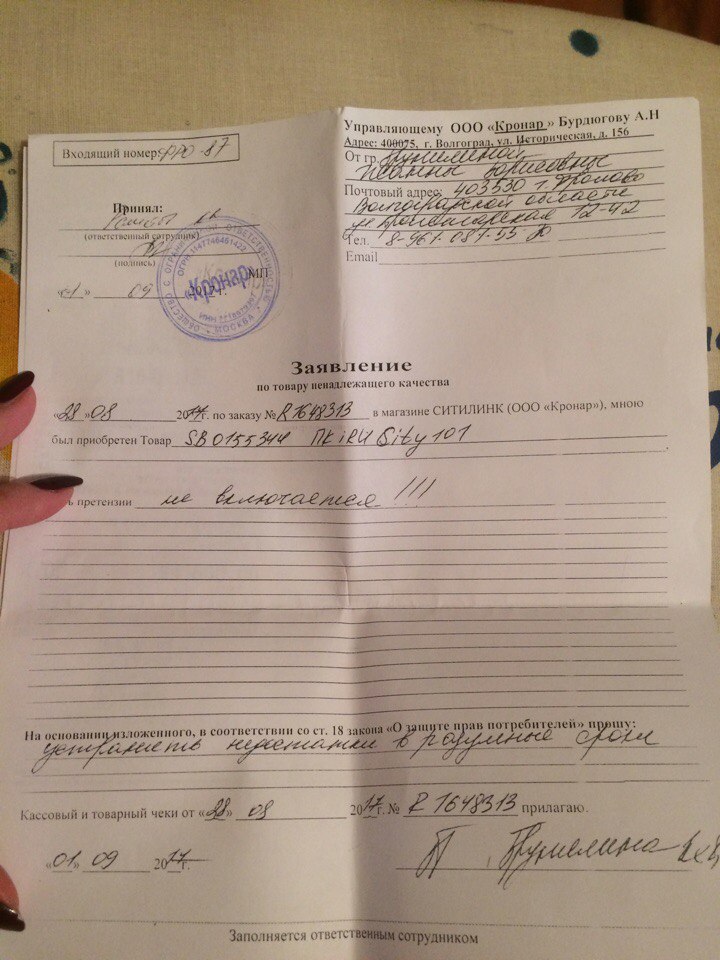 Входящий номер ФРО-87
Управляющему ООО «Кронар » Бурдюгову А.Н
Адрес: 400075, г. Волгоград, ул. Историческая, д. 156
От гр.
Жанны Борисовны
Почтовый адрес: 403530 г. Фролово
Волгоградской области
ул. 12-42
Тел. 8-961-081-55
Email
Принял:
(ответственный сотрудник)
(подпись)
МП
«01» 09 2017г.
ОБЩЕСТВО С ОГРАНИЧЕННОЙ ОТВЕТСТВЕННОСТЬЮ
ОГРН 1147746461422
«Кронар»
ИНН
МОСКВА
Заявление
по товару ненадлежащего качества
«28»08 2017г. по заказу № R1648313 в магазине СИТИЛИНК (ООО «Кронар»), мною
был приобретен Товар SB0155344 ПК iRU City 101
ь претензии не включается!!!
На основании изложенного, в соответствии со ст. 18 закона «О защите прав потребителей» прошу:
устранить недостатки в разумные сроки
Кассовый и товарный чеки от «28» 08 2017г. № R1648313 прилагаю.
«01» 09 2017г.
Заполняется ответственным сотрудником